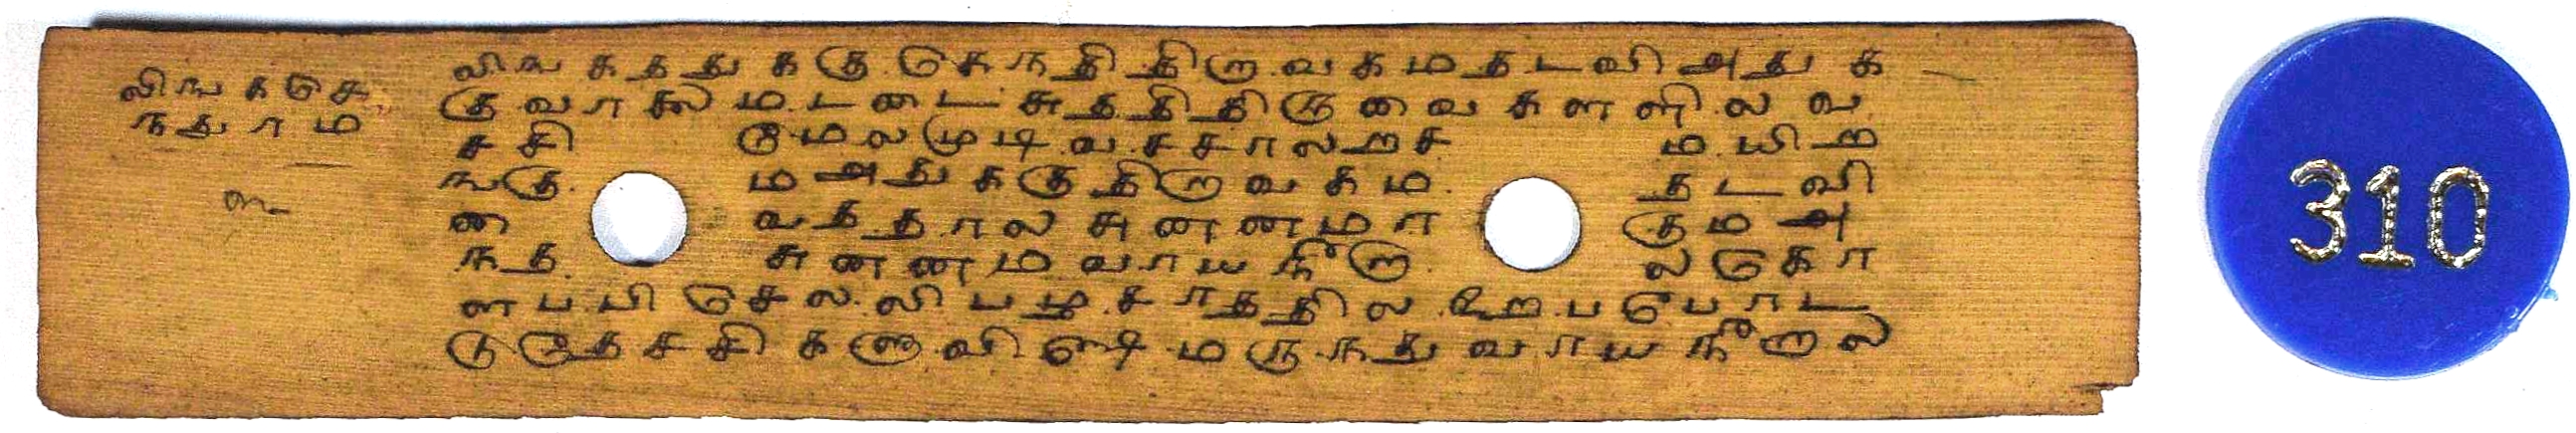 லிஙகசெ
நதூரம
௩
லிஙகததுககு செநதிதிறவகமதடவி அதுக
குவாகலமடடைசுததிதிருவைகளளிலவ
சசி மேலமுடிவசசாலறச மயிற
ஙகு மஅதுககுதிறவகம தடவி
வைததாலசுணணமா குமஅ
நத சுணணமவாயநீறு லகொ
ளபபிசெலலிபழசாததிலறேபபோட
டுதேசசிகளுவிஷமருநதுவாயநீறல
310